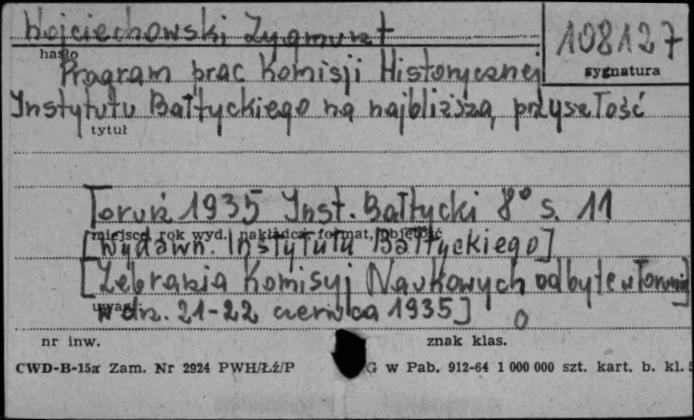 Wojciechowski Zygmunt
108127
hasło
sygnatura
Program prac Komisji Historycznej
Instytutu Bałtyckiego na najbliższą przyszłość
tytuł
Toruń 1935 Inst. Bałtycki 8° s. 11
miejsce, rok wyd., nakładca, format, objętość
[Wydawn. Instytutu Bałtyckiego]
[Zebrania Komisyj Naukowych odbyte w Toruniu]
uwagi
w dn. 21-22 czerwca 1935]
nr inw.
znak klas.
CWD-B-15a Zam. Nr 2924 PWH/Łź/P
G w Pab. 912-64 1 000 000 szt. kart. b. kl. 5